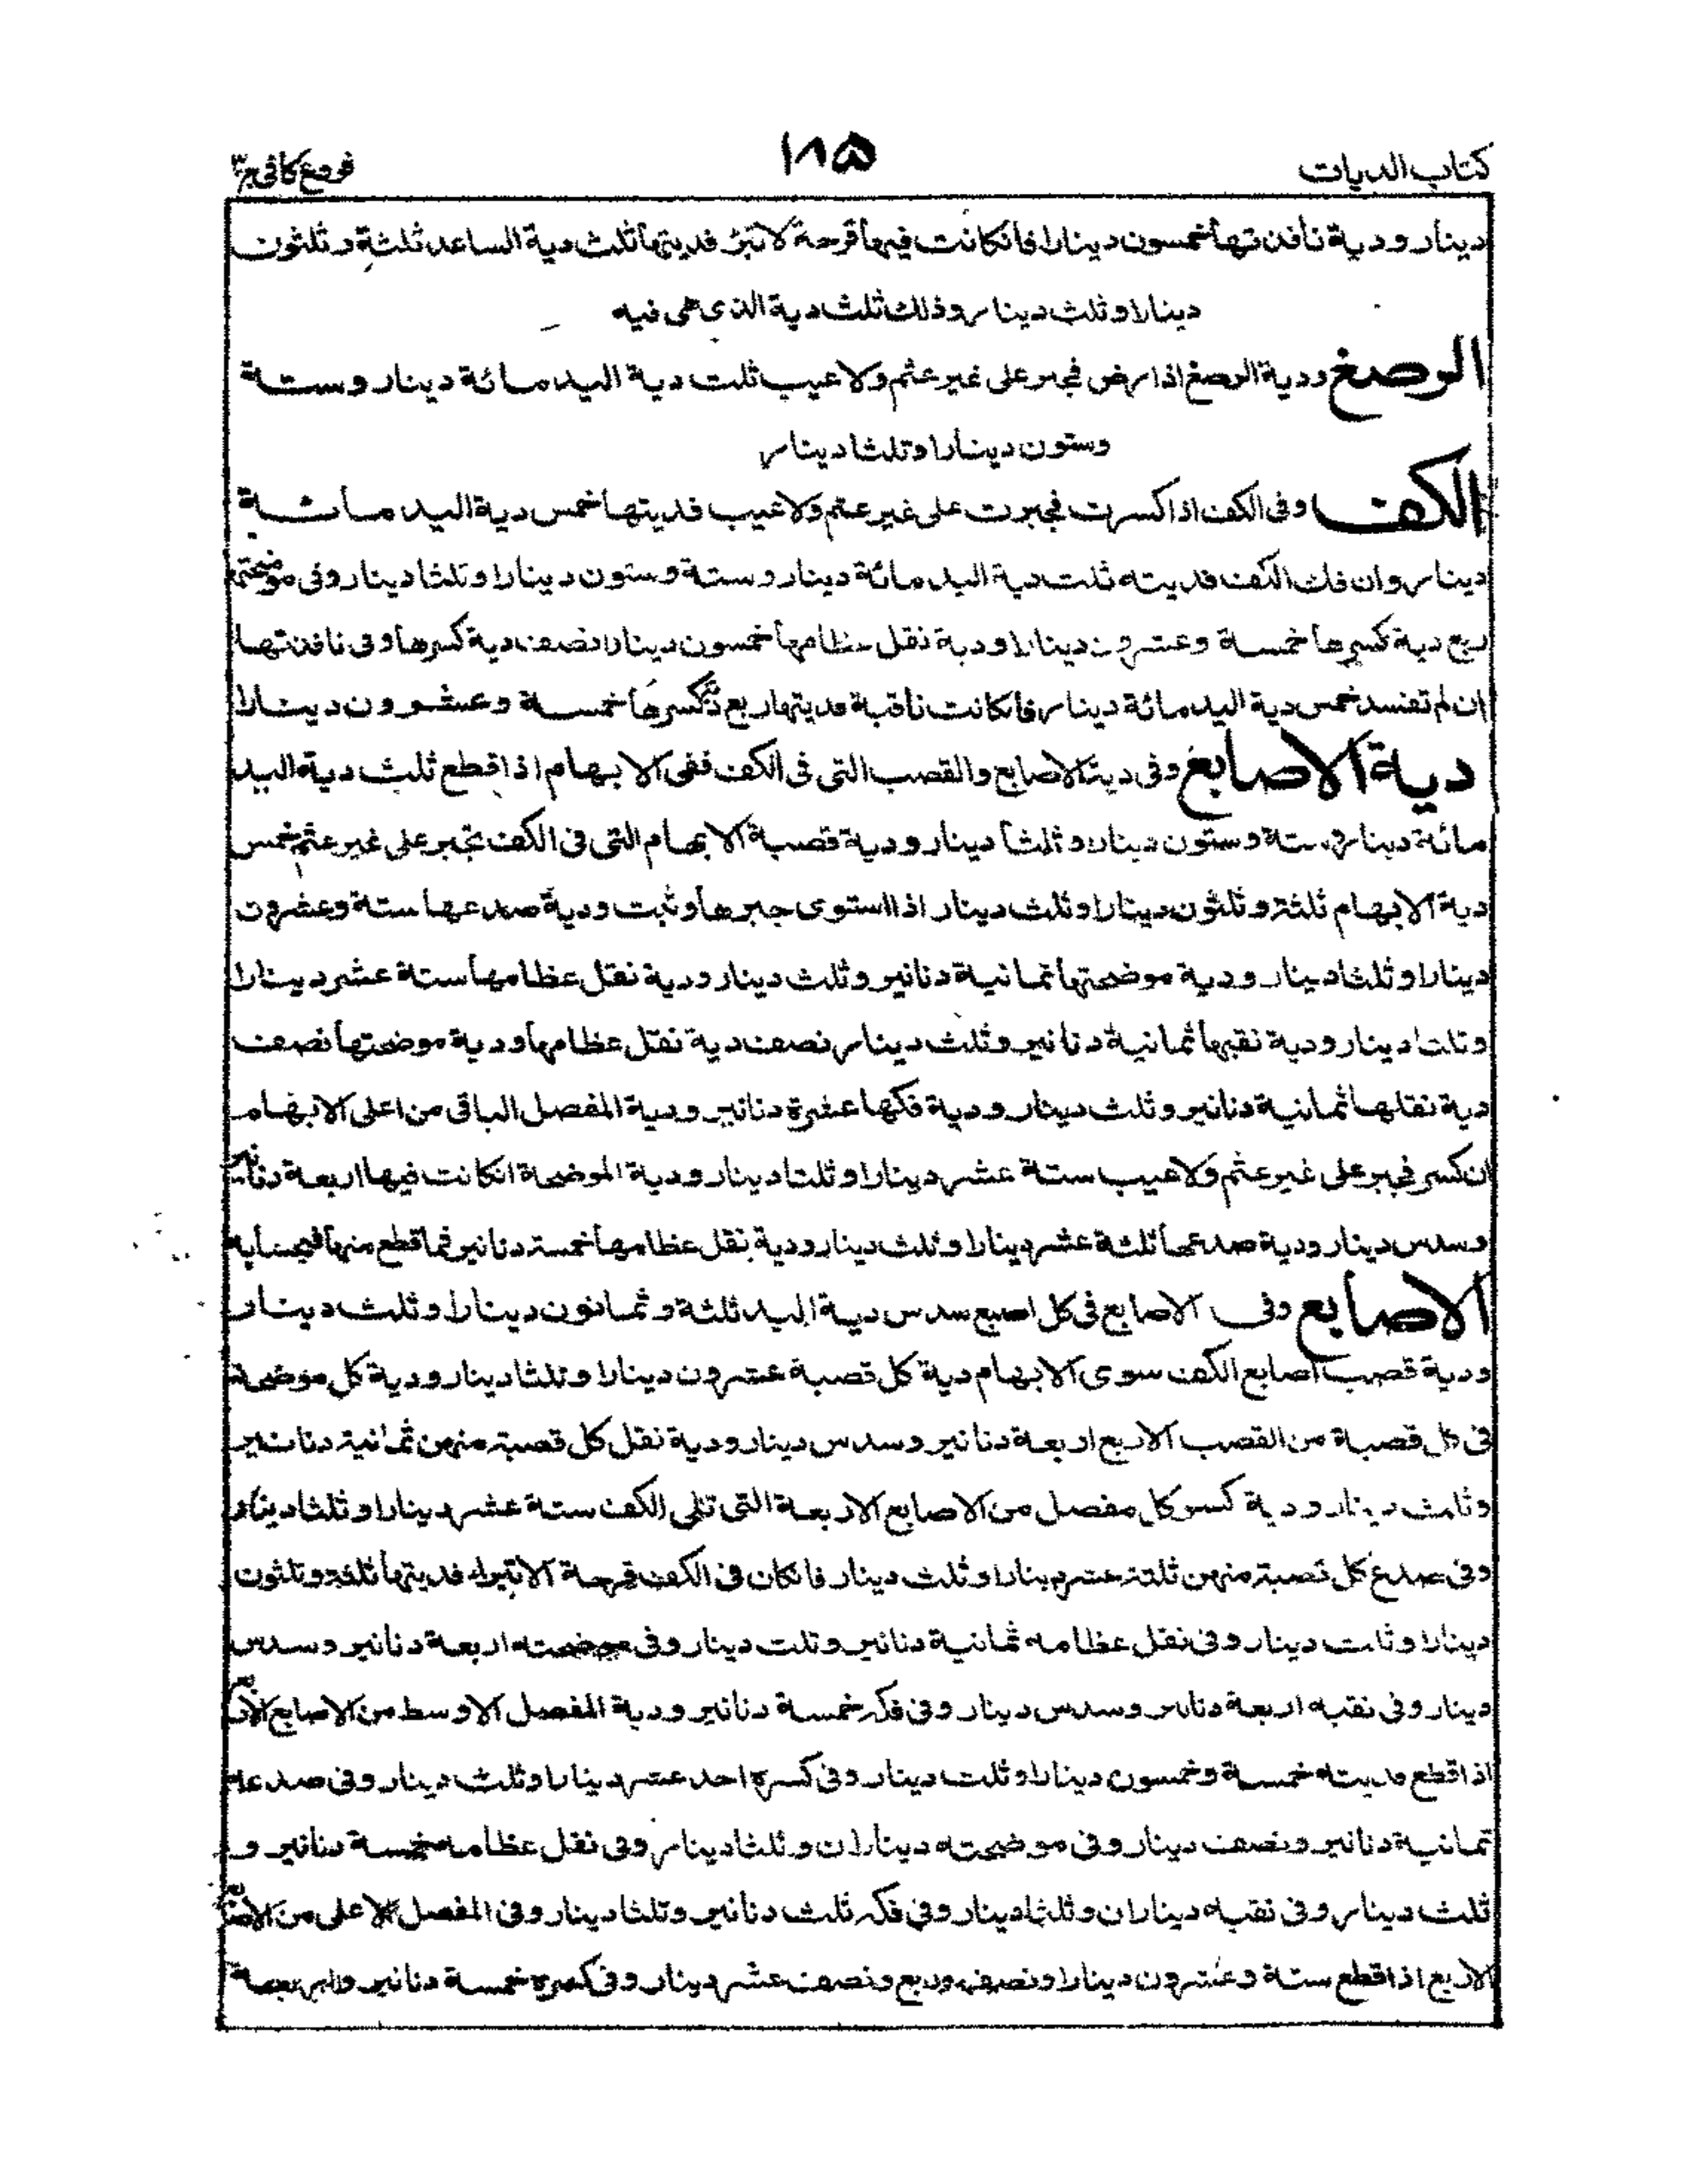 كتاب الديات
١٨٥
فروع كافى ج٣
دينار ودية نافذتها خمسون دينارا فانكانت فيها قرحة لا تبرُ فديتها ثلث دية الساعد ثلثة وثلثون
دينارا وثلث دينار وذلك ثلث دية الذى هى فيه
الرصغ ودية الرصغ اذا رض فجبر على غير عثم ولا عيب ثلث دية اليد مائة دينار وستة
وستون دينارا وثلثا دينار
الكف وفى الكف اذا كسرت فجبرت على غير عثم ولا عيب فديتها خمس دية اليد مائة
دينار وان فك الكف فديته ثلث دية اليد مائة دينار وستة وستون دينارا وثلثا دينار وفى موضحتها
ربع دية كسرها خمسة وعشرون دينارا ودية نقل عظامها خمسون دينارا نصف دية كسرها وفى نافذتها
ان لم تفسد خمس دية اليد مائة دينار فانكانت ناقبة فديتها ربع دية كسرها خمسة وعشرون دينارا
دية الاصابع وفى دية الاصابع والقصب التى فى الكف ففى الابهام اذا قطع ثلث دية اليد
مائة دينار وستة وستون دينارا وثلثا دينار ودية قصبة الابهام التى فى الكف تجبر على غير عثم خمس
دية الابهام ثلثة وثلثون دينارا وثلث دينار اذا استوى جبرها وثبت ودية صدعها ستة وعشرون
دينارا وثلثا دينار ودية موضحتها ثمانية دنانير وثلث دينار ودية نقل عظامها ستة عشر دينارا
وثلثا دينار ودية نقبها ثمانية دنانير وثلث دينار نصف دية نقل عظامها ودية موضحتها نصف
دية نقلها ثمانية دنانير وثلث دينار ودية فكها عشرة دنانير ودية المفصل الباقى من اعلى الابهام
ان كسر فجبر على غير عثم ولا عيب ستة عشر دينارا وثلثا دينار ودية الموضحة انكانت فيها اربعة دنانير
وسدس دينار ودية صدعها ثلثة عشر دينارا وثلث دينار ودية نقل عظامها خمسة دنانير فما قطع منها فبحسابه
الاصابع وفى الاصابع فى كل اصبع سدس دية اليد ثلثة وثمانون دينارا وثلث دينار
ودية قصب اصابع الكف سوى الابهام دية كل قصبة عشرون دينارا وثلثا دينار ودية كل موضحة
فى كل قصبة من القصب الاربع اربعة دنانير وسدس دينار ودية نقل كل قصبة منهن ثمانية دنانير
وثلث دينار ودية كسر كل مفصل من الاصابع الاربعة التى تلى الكف ستة عشر دينارا وثلثا دينار
وفى صدع كل قصبة منهن ثلثة عشر دينارا وثلث دينار فانكان فى الكف قرحة لا تبرا فديتها ثلثة وثلثون
دينارا وثلث دينار وفى نقل عظامه ثمانية دنانير وثلث دينار وفى موضحته اربعة دنانير وسدس
دينار وفى نقبه اربعة دنانير وسدس دينار وفى فكه خمسة دنانير ودية المفصل الاوسط من الاصابع الاربع
اذا قطع فديته خمسة وخمسون دينارا وثلث دينار وفى كسره احد عشر دينارا وثلث دينار وفى صدعه
ثمانية دنانير ونصف دينار وفى موضحته ديناران وثلثا دينار وفى نقل عظامه خمسة دنانير و
ثلث دينار وفى نقبه ديناران وثلثا دينار وفى فكه ثلث دنانير وثلثا دينار وفى المفصل الاعلى من الاصابع
الاربع اذا قطع ستة وعشرون دينارا ونصف وربع ونصف عشر دينار وفى كسره خمسة دنانير واربعة